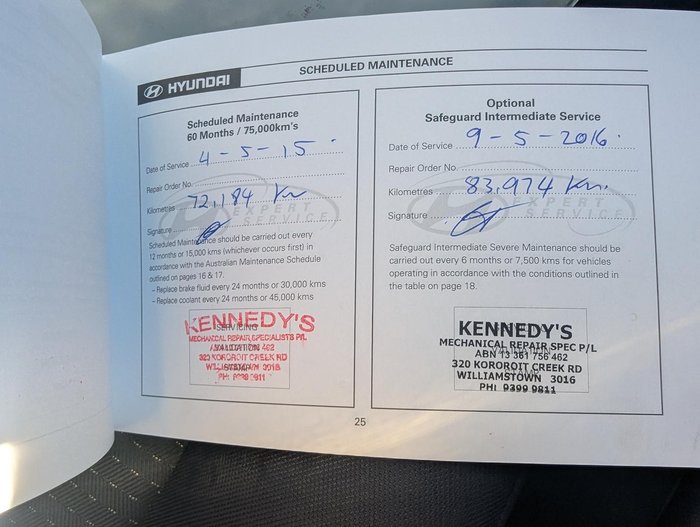 HYUNDAI
SCHEDULED MAINTENANCE
Scheduled Maintenance
60 Months / 75,000km's
Date of Service 4-5-15
Repair Order No.
Kilometres 72,184 Km
Signature
EXPERT
SERVICE
Scheduled Maintenance should be carried out every
12 months or 15,000 kms (whichever occurs first) in
accordance with the Australian Maintenance Schedule
outlined on pages 16 & 17.
– Replace brake fluid every 24 months or 30,000 kms
– Replace coolant every 24 months or 45,000 kms
KENNEDY'S
SERVICING
MECHANICAL REPAIR SPECIALISTS P/L
320 KOROROIT CREEK RD
WILLIAMSTOWN 3016
Optional
Safeguard Intermediate Service
Date of Service 9-5-2016.
Repair Order No.
Kilometres 83,974 Km.
Signature
EXPERT
SERVICE
Safeguard Intermediate Severe Maintenance should be
carried out every 6 months or 7,500 kms for vehicles
operating in accordance with the conditions outlined in
the table on page 18.
KENNEDY'S
MECHANICAL REPAIR SPEC P/L
ABN 13 361 756 462
320 KOROROIT CREEK RD
WILLIAMSTOWN 3016
PH: 9399 9811
25